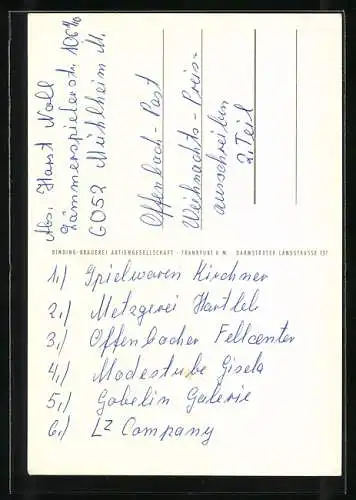 Abs. Horst Noll
Lämmerspielerstr. 106 10
6052 Mühlheim M.
Offenbach-Post
Weihnachts-Preis-
ausschreiben
2. Teil
BINDING-BRAUEREI AKTIENGESELLSCHAFT · FRANKFURT A M. · DARMSTÄDTER LANDSTRASSE 137
1.) Spielwaren Kirchner
2.) Metzgerei Hartleb
3.) Offenbacher Fellcenter
4.) Modestube Gisela
5.) Gobelin Galerie
6.) LZ Company